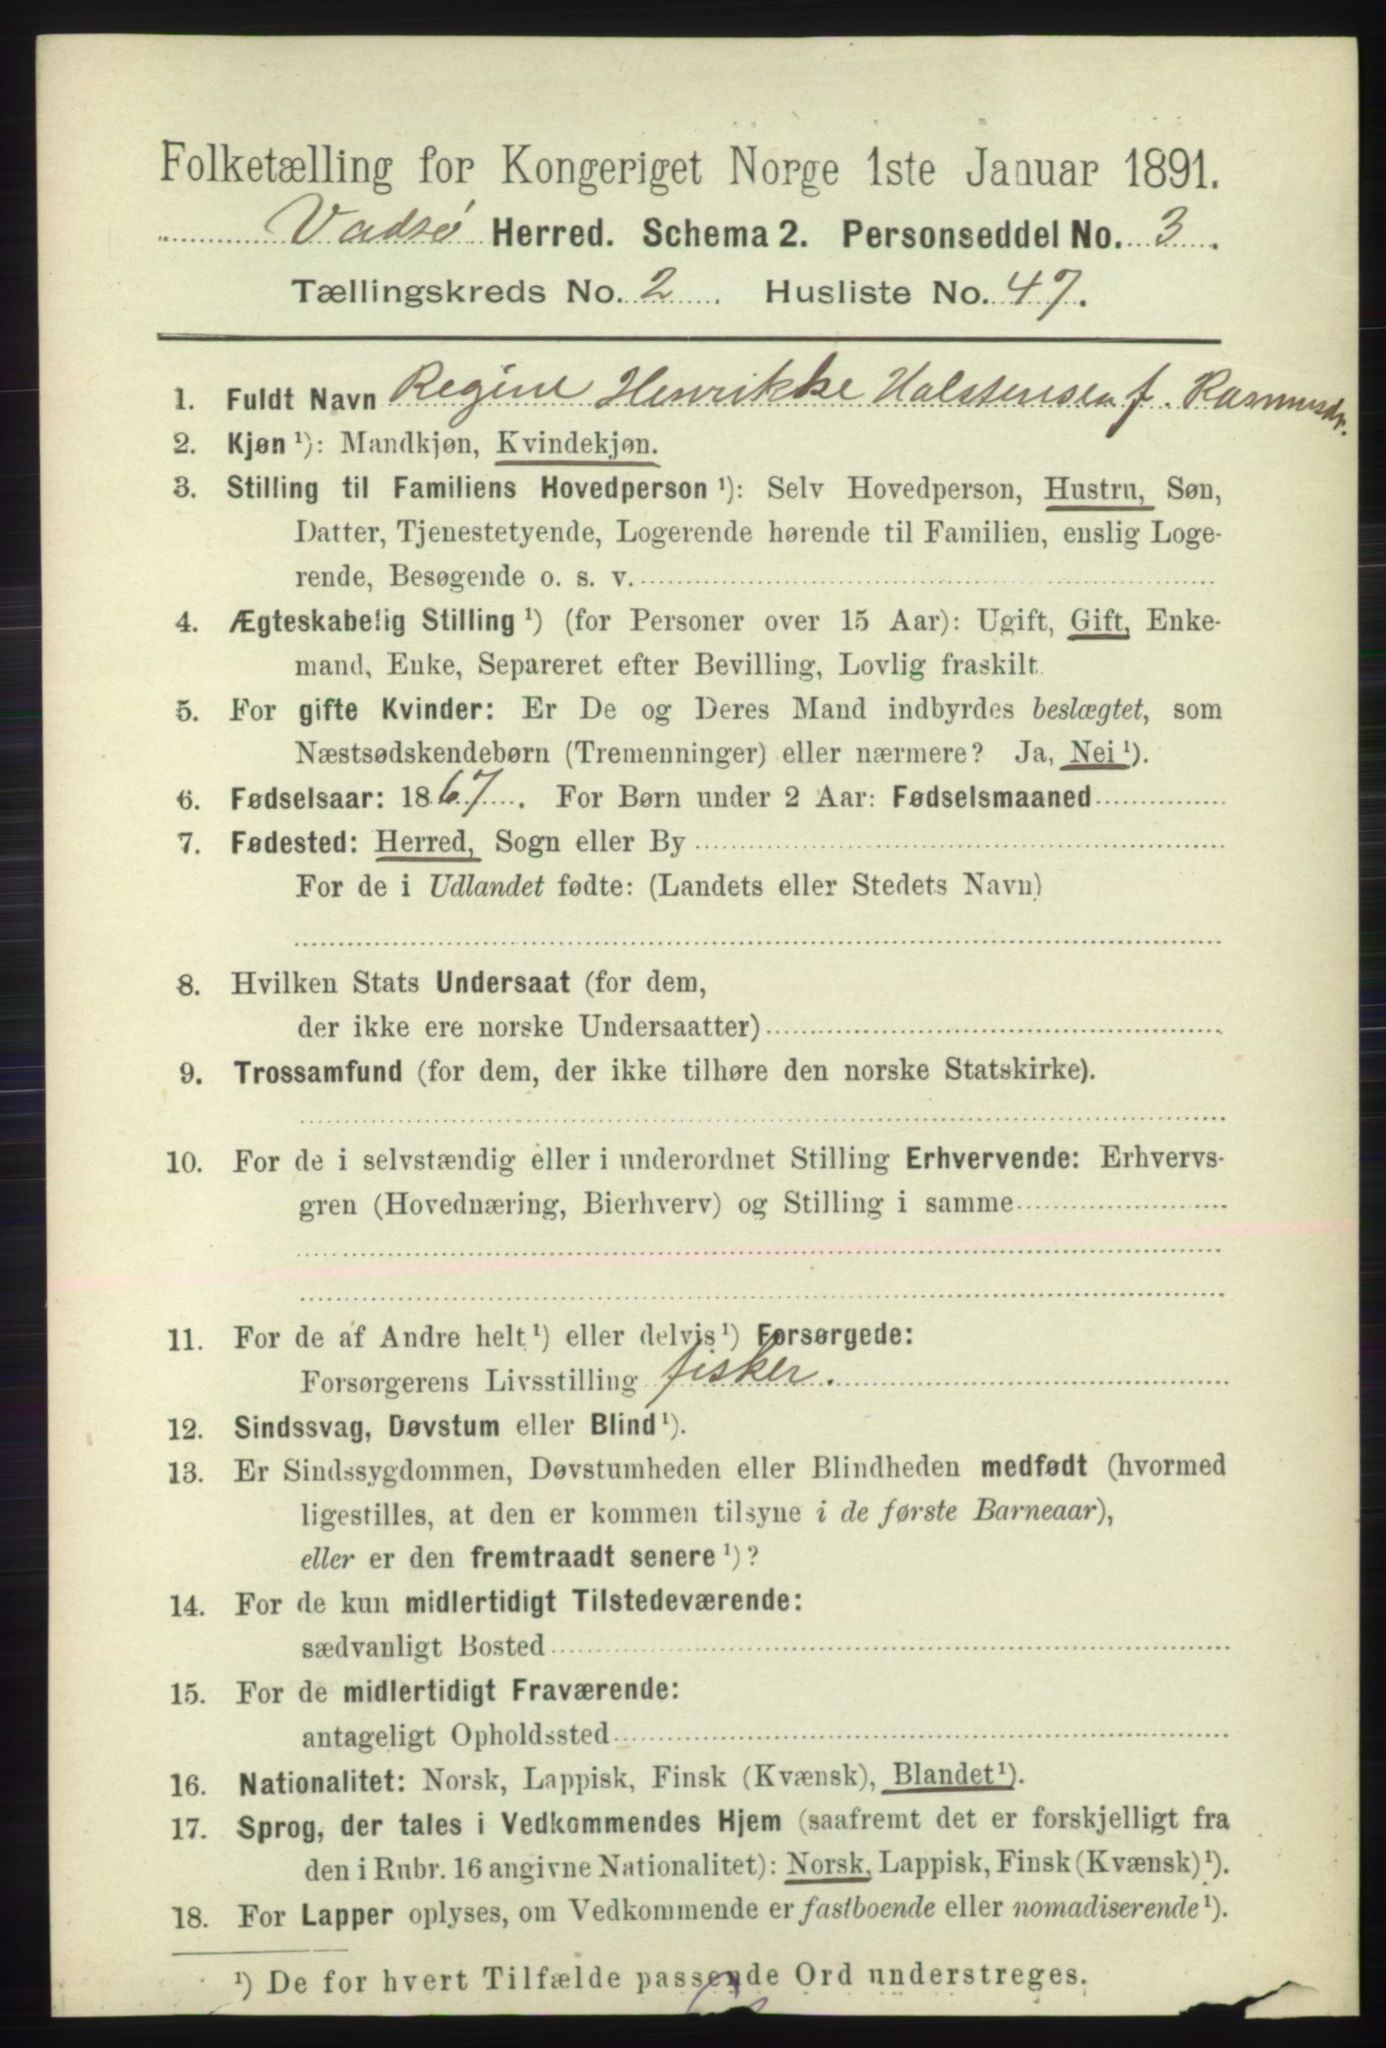 Folketælling for Kongeriget Norge 1ste Januar 1891.
Vadsø Herred. Schema 2. Personseddel No. 3.
Tællingskreds No. 2 Husliste No. 47.
1. Fuldt Navn Regine Henrikke Halstensen f. Rasmusdr.
2. Kjøn ¹): Mandkjøn, Kvindekjøn.
3. Stilling til Familiens Hovedperson ¹): Selv Hovedperson, Hustru, Søn,
Datter, Tjenestetyende, Logerende hørende til Familien, enslig Loge-
rende, Besøgende o. s. v.
4. Ægteskabelig Stilling ¹) (for Personer over 15 Aar): Ugift, Gift, Enke-
mand, Enke, Separeret efter Bevilling, Lovlig fraskilt.
5. For gifte Kvinder: Er De og Deres Mand indbyrdes beslægtet, som
Næstsødskendebørn (Tremenninger) eller nærmere? Ja, Nei ¹).
6. Fødselsaar: 1867. For Børn under 2 Aar: Fødselsmaaned
7. Fødested: Herred, Sogn eller By
For de i Udlandet fødte: (Landets eller Stedets Navn)
8. Hvilken Stats Undersaat (for dem,
der ikke ere norske Undersaatter)
9. Trossamfund (for dem, der ikke tilhøre den norske Statskirke).
10. For de i selvstændig eller i underordnet Stilling Erhvervende: Erhvervs-
gren (Hovednæring, Bierhverv) og Stilling i samme
11. For de af Andre helt ¹) eller delvis ¹) Forsørgede:
Forsørgerens Livsstilling fisker.
12. Sindssvag, Døvstum eller Blind ¹).
13. Er Sindssygdommen, Døvstumheden eller Blindheden medfødt (hvormed
ligestilles, at den er kommen tilsyne i de første Barneaar),
eller er den fremtraadt senere ¹)?
14. For de kun midlertidigt Tilstedeværende:
sædvanligt Bosted
15. For de midlertidigt Fraværende:
antageligt Opholdssted
16. Nationalitet: Norsk, Lappisk, Finsk (Kvænsk), Blandet ¹).
17. Sprog, der tales i Vedkommendes Hjem (saafremt det er forskjelligt fra
den i Rubr. 16 angivne Nationalitet): Norsk, Lappisk, Finsk (Kvænsk) ¹).
18. For Lapper oplyses, om Vedkommende er fastboende eller nomadiserende ¹).
¹) De for hvert Tilfælde passende Ord understreges.